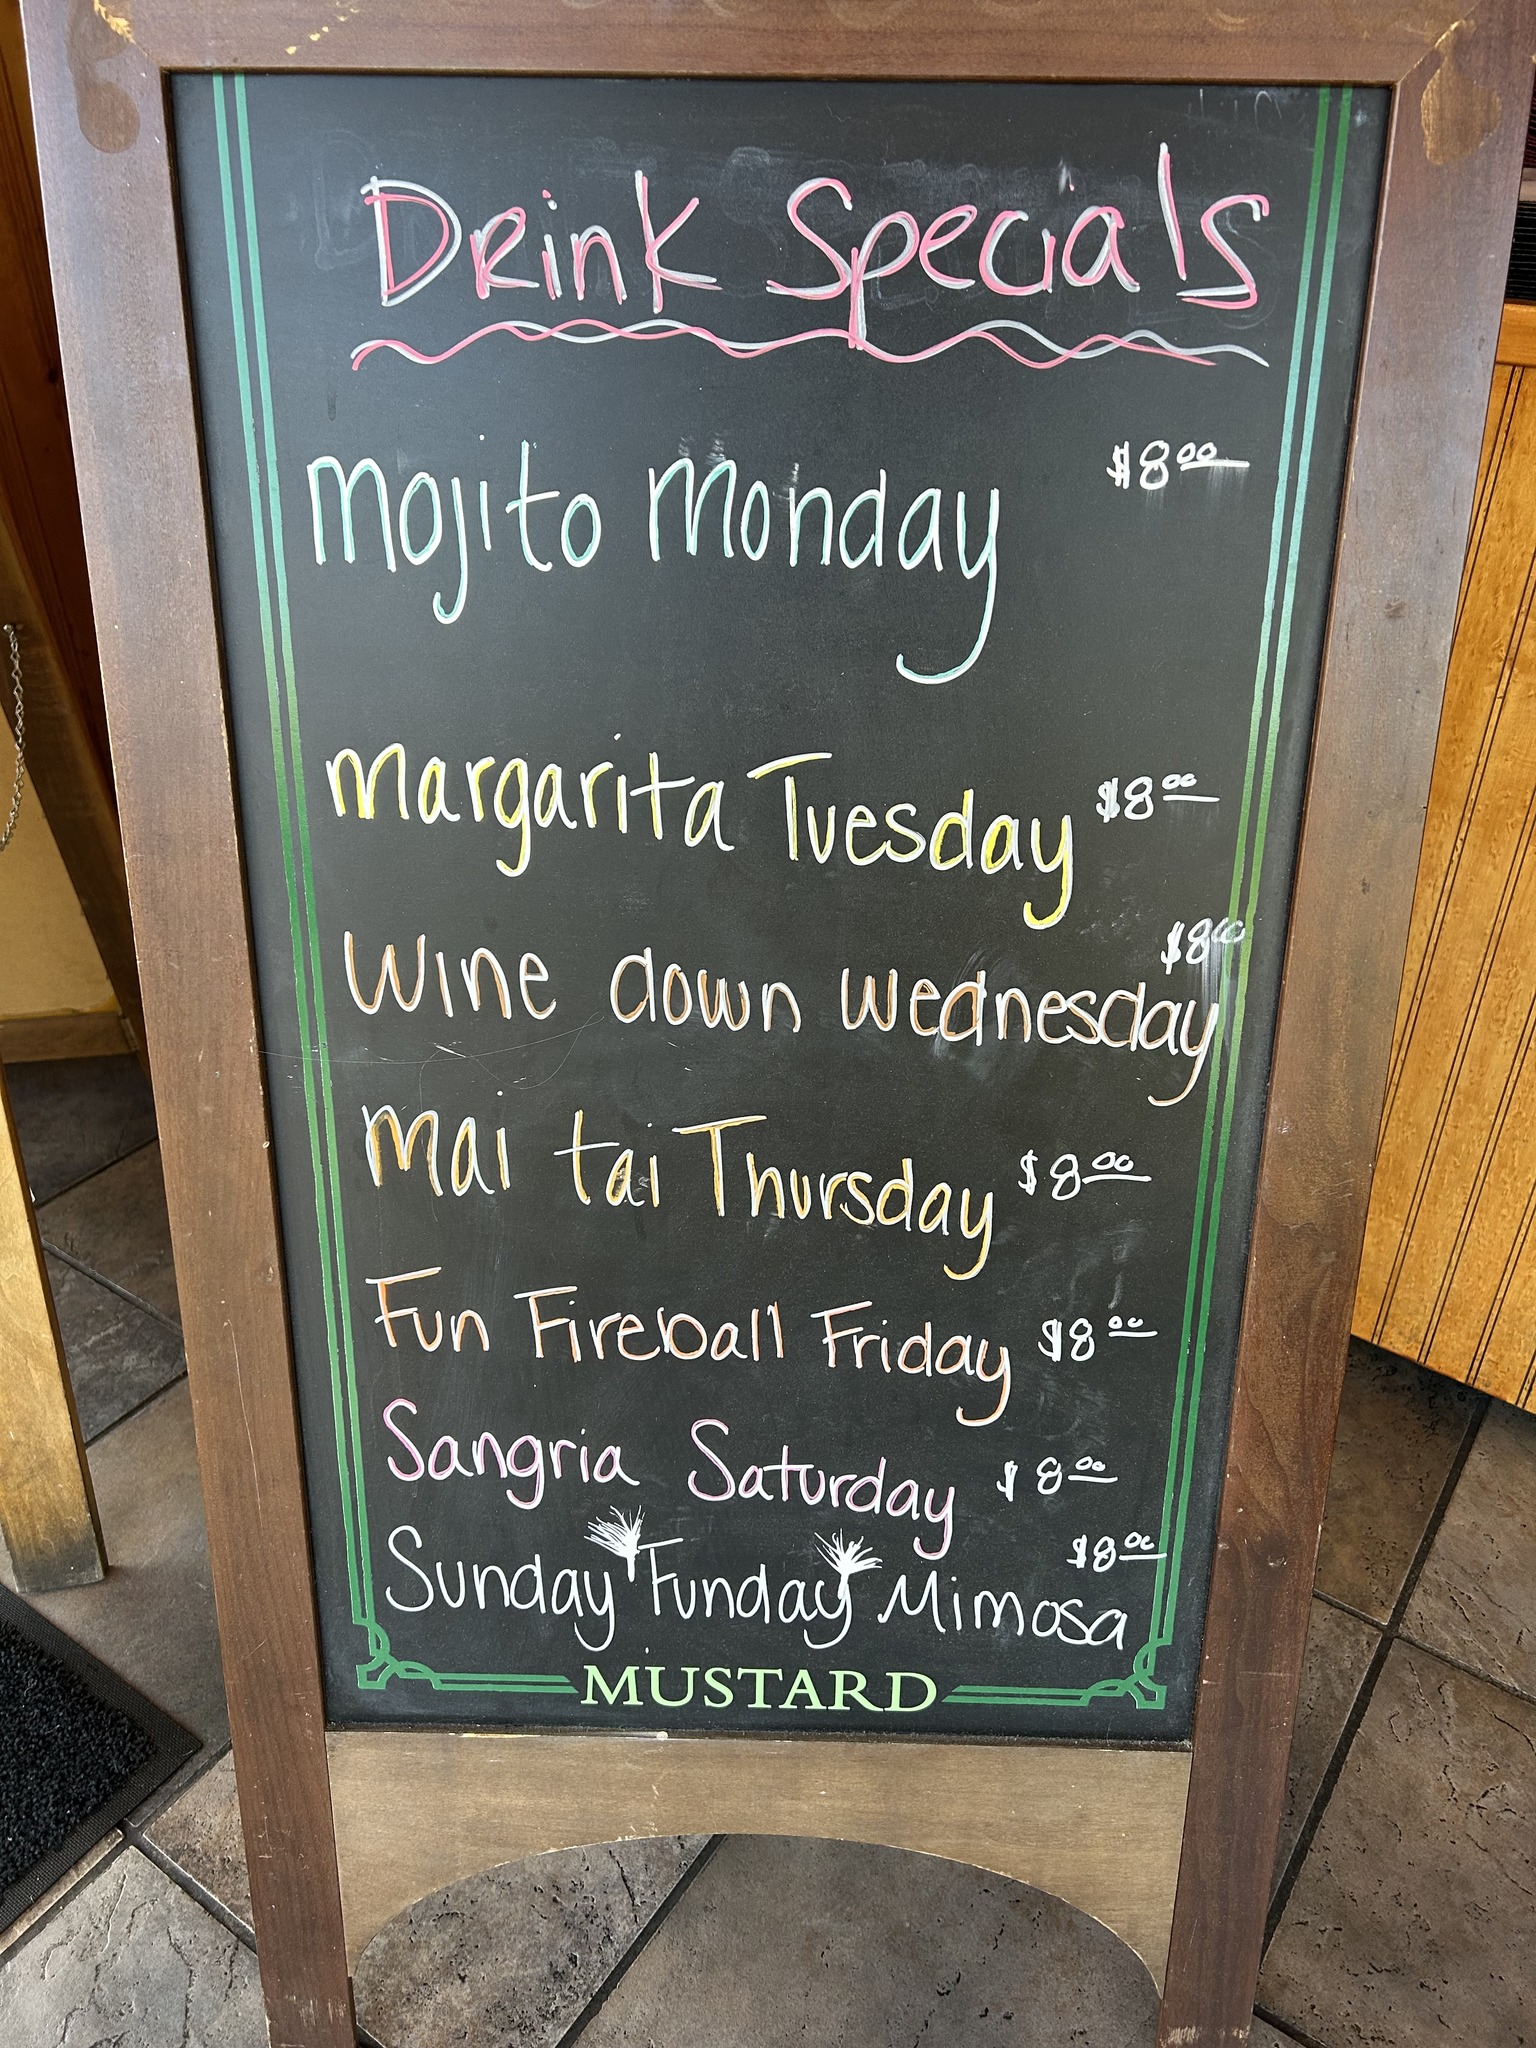 Drink Specials
Mojito Monday $8.00
Margarita Tuesday $8.00
Wine down Wednesday $8.00
Mai tai Thursday $8.00
Fun Fireball Friday $8.00
Sangria Saturday $8.00
Sunday Funday Mimosa $8.00
MUSTARD